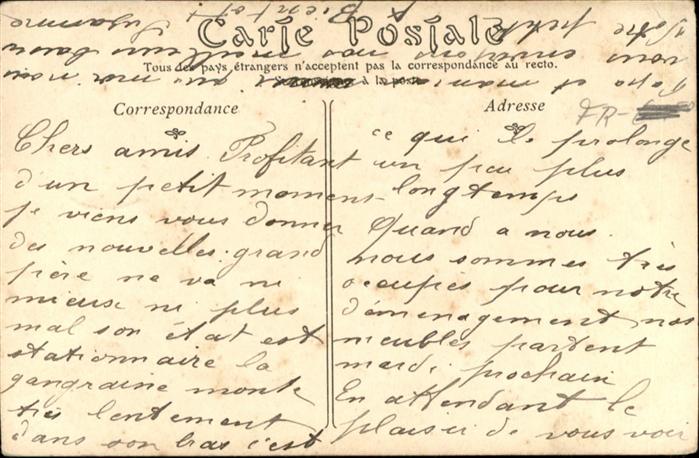 Carte Postale
Tous des pays étrangers n'acceptent pas la correspondance au recto.
à la poste
Correspondance
Adresse
FR-
Chers amis. Profitant
d'un petit moment
je viens vous donner
des nouvelles. grand
père ne va ni
mieux ni plus
mal son état est
stationnaire la
gangraine monte
très lentement
dans son bras c'est
ce qui le prolonge
un peu plus
longtemps
Quand a nous.
nous sommes très
occupés pour notre
déménagement nos
meubles partent
mardi prochain
En attendant le
plaisir de vous voir
Papa et maman
vous
baisers
Votre petite
Suzanne
Bientôt